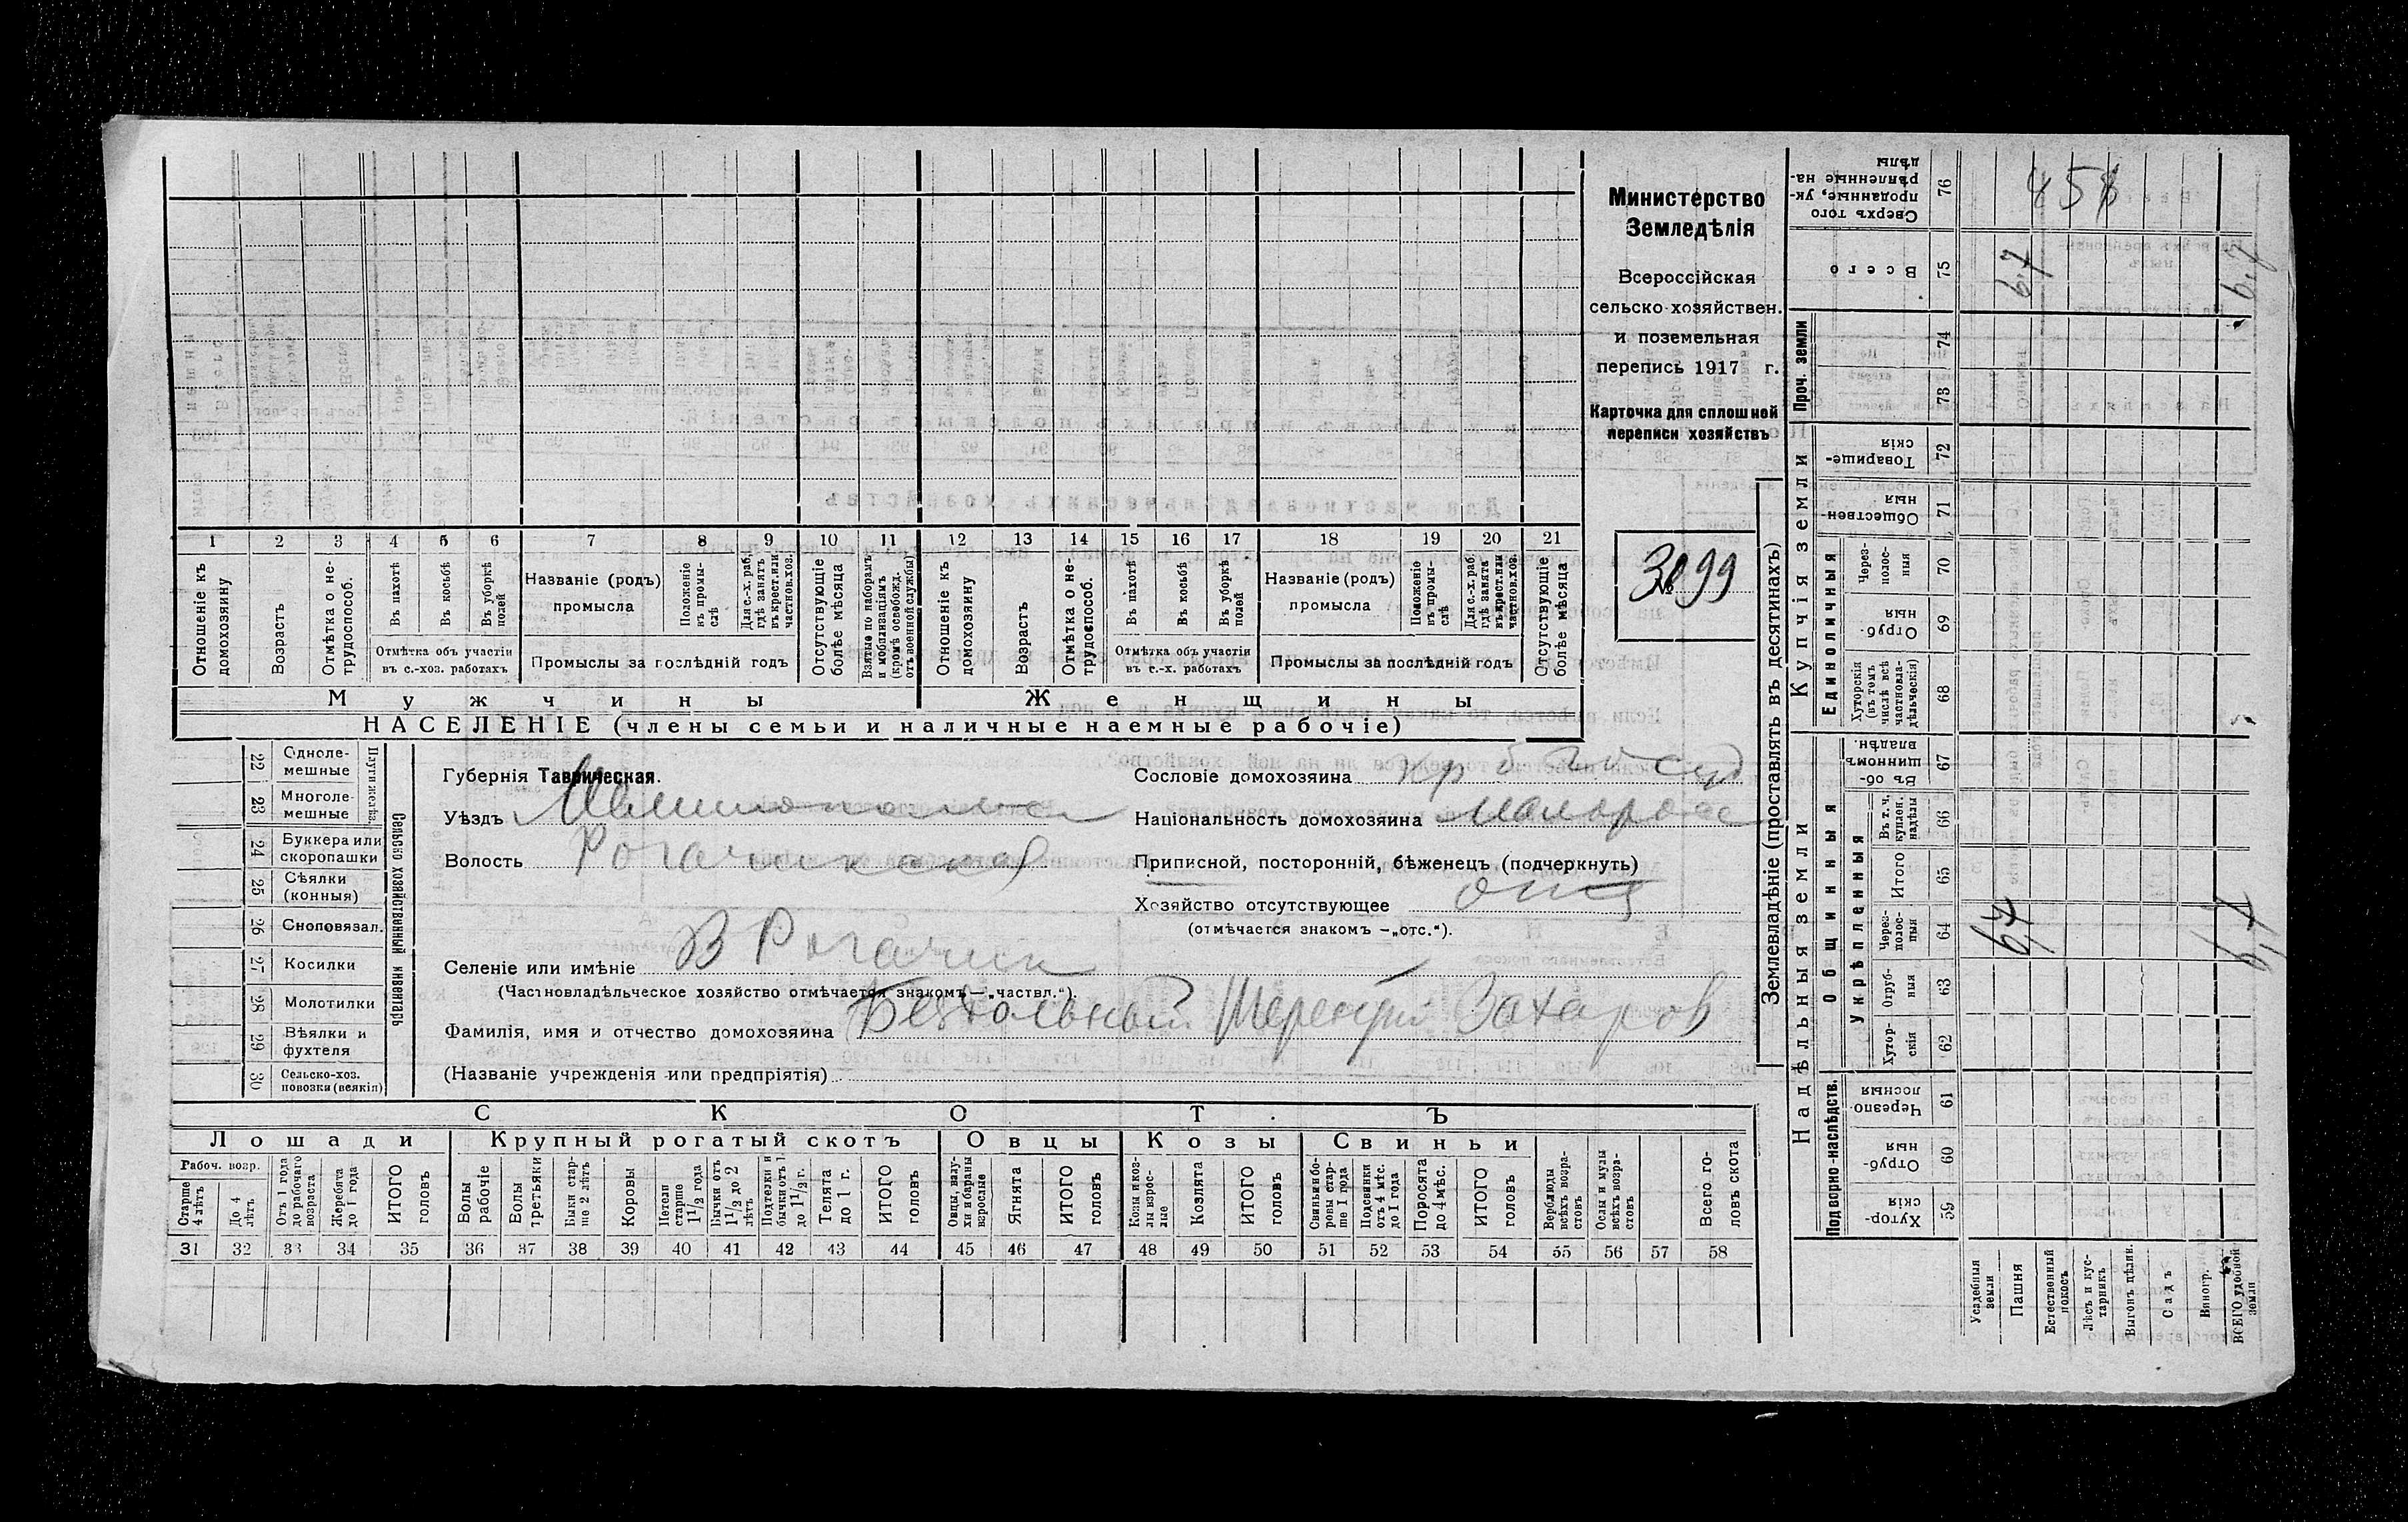 Министерство
Земледѣлія
Всероссійская
сельско-хозяйствен.
и поземельная
перепись 1917 г.
Карточка для сплошной
переписи хозяйствъ
3099
1 2 3 4 5 6 7 8 9 10 11 12 13 14 15 16 17 18 19 20 21
Отношеніе къ домохозяину
Возрастъ
Отмѣтка о нетрудоспособ.
Въ пахотѣ
Въ косьбѣ
Въ уборкѣ полей
Отмѣтка объ участіи
въ с.-хоз. работахъ
Названіе (родъ)
промысла
Положеніе въ промыслѣ
Для с.-х. раб, гдѣ занятъ въ крест. или частнов. хоз.
Промыслы за послѣдній годъ
Отсутствующіе болѣе мѣсяца
Взятые по наборамъ и мобилизаціямъ (кромѣ освобожд. отъ военной службы)
Отношеніе къ домохозяину
Возрастъ
Отмѣтка о нетрудоспособ.
Въ пахотѣ
Въ косьбѣ
Въ уборкѣ полей
Отмѣтка объ участіи
въ с.-х. работахъ
Названіе (родъ)
промысла
Положеніе въ промыслѣ
Для с.-х. раб. гдѣ занята въ крест. или частнов. хоз.
Промыслы за послѣдній годъ
Отсутствующіе болѣе мѣсяца
Мужчины
Женщины
НАСЕЛЕНІЕ (члены семьи и наличные наемные рабочіе)
22 Однолемешные
23 Многолемешные
24 Буккера или скоропашки
25 Сѣялки (конныя)
26 Сноповязал.
27 Косилки
28 Молотилки
29 Вѣялки и фухтеля
30 Сельско-хоз. повозки (всякія)
Сельско хозяйственный инвентарь
Губернія Таврическая.
Уѣздъ
Волость Рогачикская
Селеніе или имѣніе В Рогачик
(Частновладѣльческое хозяйство отмѣчается знакомъ—„частвл.“)
Фамилія, имя и отчество домохозяина Безпольный Терентій Захаров
(Названіе учрежденія или предпріятія)
Сословіе домохозяина кр
Національность домохозяина малоросс
Приписной, посторонній, бѣженецъ (подчеркнуть)
Хозяйство отсутствующее отс
(отмѣчается знакомъ —„отс.“).
СКОТЪ
Лошади
Крупный рогатый скотъ
Овцы
Козы
Свиньи
Рабоч. возр.
Старше 4 лѣтъ
До 4 лѣтъ
Отъ 1 года до рабочаго возраста
Жеребята до 1 года
ИТОГО головъ
Волы рабочіе
Волы третьяки
Быки старше 2 лѣтъ
Коровы
Нетели старше 1 1/2 года
Бычки отъ 1 1/2 до 2 лѣтъ
Подтелки и бычки отъ 1 до 1 1/2 г.
Телята до 1 г.
ИТОГО головъ
Овцы, валухи и бараны взрослые
Ягнята
ИТОГО головъ
Козы и козлы взрослые
Козлята
ИТОГО головъ
Свиньи боровы старше 1 года
Подсвинки отъ 4 мѣс. до 1 года
Поросята до 4 мѣс.
ИТОГО головъ
Верблюды всѣхъ возрастовъ
Ослы и мулы всѣхъ возрастовъ
Всего головъ скота
31 32 33 34 35 36 37 38 39 40 41 42 43 44 45 46 47 48 49 50 51 52 53 54 55 56 57 58
Землевладѣніе (проставлять въ десятинахъ)
Надѣльныя земли
Купчія земли
Проч. земли
Подворно-наслѣдств.
Общинныя
Укрѣпленныя
Единоличныя
76 Сверхъ того проданные, укрѣпленные надѣлы
75 Всего
74
73
72 Товарищескія
71 Общественныя
70 Черезполосныя
69 Отрубныя
68 Хуторскія (въ томъ числѣ всѣ частновладѣльческія)
67 Въ общинномъ владѣн.
66 Въ т. ч. куплен. надѣлы
65 Итого
64 Черезполосныя
63 Отрубныя
62 Хуторскія
61 Черезполосныя
60 Отрубныя
59 Хуторскія
Усадебныя земли
Пашня
Естественный покосъ
Лѣсъ и кустарникъ
Выгонъ цѣлин.
Садъ
Виногр.
ВСЕГО удобной земли
6,7
6,7
6,7
6,7